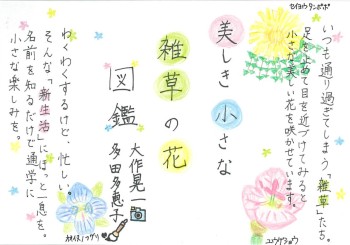 セイヨウタンポポ
いつも通り過ぎてしまう「雑草」たち。
足を止めて目を近づけてみると
小さな美しい花を咲かせています。
美しき小さな
雑草の花
図鑑
大作晃一
多田多恵子
わくわくするけど、忙しい。
そんな「新生活」にほっと一息を。
名前を知るだけで通学に
小さな楽しみを。
オオイヌノフグリ
ユウゲショウ